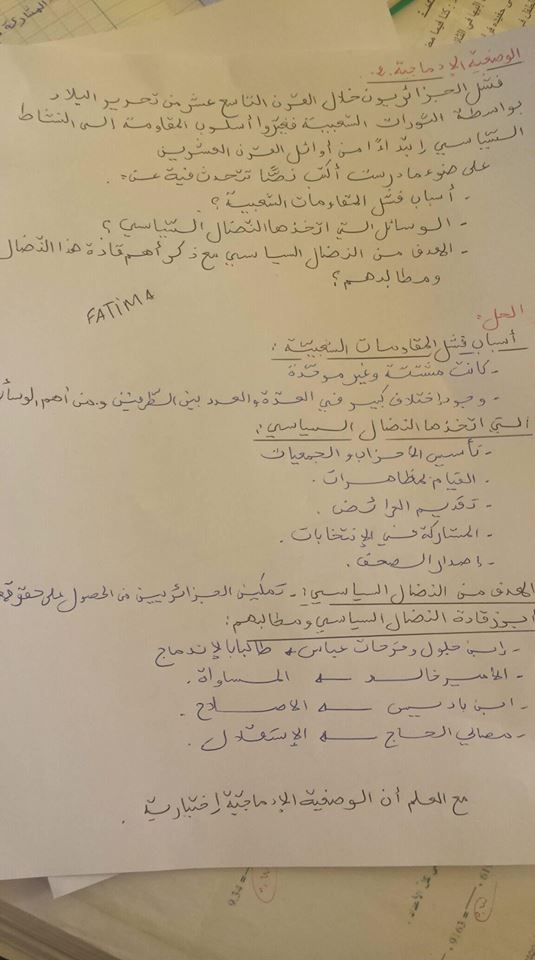 الوضعية الإدماجية.
فشل الجزائريون خلال القرن التاسع عشر من تحرير البلاد
بواسطة الثورات الشعبية فغيروا أسلوب المقاومة الى النشاط
السياسي إبتداءًا من أوائل القرن العشرين
على ضوء ما درست أكتب نصًّا تتحدث فيه عن:
- أسباب فشل المقاومات الشعبية؟
- الوسائل التي اتخذها النضال السياسي؟
- الهدف من النضال السياسي مع ذكر أهم قادة هذا النضال
ومطالبهم؟
FATIMA
الحل:
أسباب فشل المقاومات الشعبية:
- كانت مشتتة وغير موحدة
- وجود إختلاف كبير في العدة والعدد بين الطرفين و من أهم الوسائل
التي اتخذها النضال السياسي:
- تأسيس الأحزاب و الجمعيات
- القيام بمظاهرات.
- تقديم العرائض.
- المشاركة في الإنتخابات.
- إصدار الصحف.
الهدف من النضال السياسي: - تمكين الجزائريين من الحصول على حقوقهم
ابرز قادة النضال السياسي ومطالبهم:
- ابن جلول وفرحات عباس ← طالبا بالإندماج
- الأمير خالد ← المساواة.
- ابن باديس ← الإصلاح.
- مصالي الحاج ← الإستقلال.
مع العلم أن الوضعية الإدماجية إختبارية.